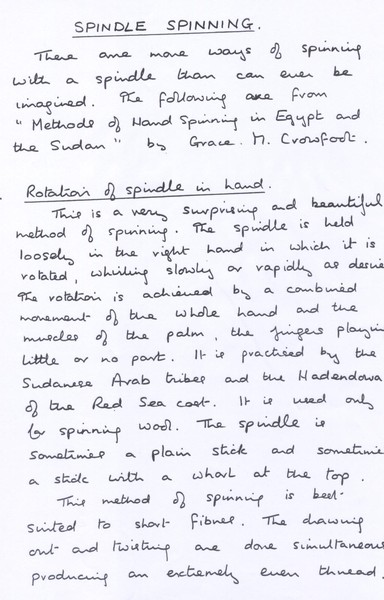 SPINDLE SPINNING.
There are more ways of spinning
with a spindle than can ever be
imagined. The following are from
"Methods of Hand Spinning in Egypt and
the Sudan" by Grace. M. Crowfoot.
Rotation of spindle in hand.
This is a very surprising and beautiful
method of spinning. The spindle is held
loosely in the right hand in which it is
rotated, whirling slowly or rapidly as desire
The rotation is achieved by a combined
movement of the whole hand and the
muscles of the palm, the fingers playin
little or no part. It is practised by the
Sudanese Arab tribes and the Hadendowa
of the Red Sea coast. It is used only
for spinning wool. The spindle is
sometimes a plain stick and sometime
a stick with a whorl at the top.
This method of spinning is best
suited to short fibres. The drawing
out and twisting are done simultaneous
producing an extremely even thread.